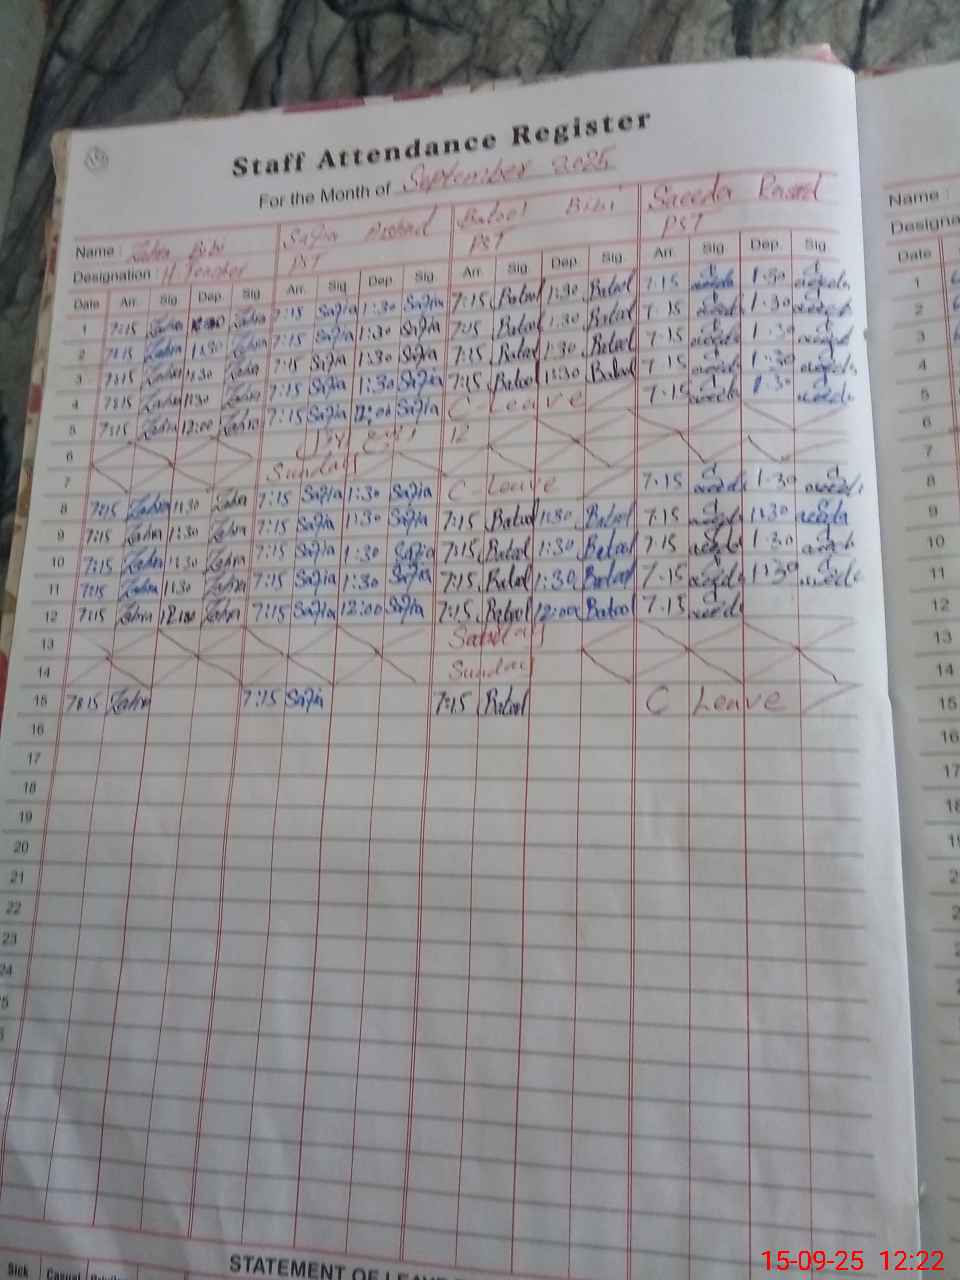 Staff Attendance Register
For the Month of September 2025
Name : Zahra Bibi Safia Arshad Batool Bibi Saeeda Rasool
Designation : H. Teacher PST PST PST
Date Arr. Sig. Dep. Sig. Arr. Sig. Dep. Sig. Arr. Sig. Dep. Sig. Arr. Sig. Dep. Sig.
1 7:15 Zahra Zahra 7:15 Safia 1:30 Safia 7:15 Batool 1:30 Batool 7:15 1:30
2 7:15 Zahra 1:30 Zahra 7:15 Safia 1:30 Safia 7:15 Batool 1:30 Batool 7:15 1:30
3 7:15 Zahra 1:30 Zahra 7:15 Safia 1:30 Safia 7:15 Batool 1:30 Batool 7:15 1:30
4 7:15 Zahra 1:30 Zahra 7:15 Safia 1:30 Safia 7:15 Batool 1:30 Batool 7:15 1:30
5 7:15 Zahra 12:00 Zahra 7:15 Safia 12:00 Safia C-Leave 7:15 1:30
6 12
7 Sunday
8 7:15 Zahra 1:30 Zahra 7:15 Safia 1:30 Safia C-Leave 7:15 1:30
9 7:15 Zahra 1:30 Zahra 7:15 Safia 1:30 Safia 7:15 Batool 1:30 Batool 7:15 1:30
10 7:15 Zahra 1:30 Zahra 7:15 Safia 1:30 Safia 7:15 Batool 1:30 Batool 7:15 1:30
11 7:15 Zahra 1:30 Zahra 7:15 Safia 1:30 Safia 7:15 Batool 1:30 Batool 7:15 1:30
12 7:15 Zahra 12:00 Zahra 7:15 Safia 12:00 Safia 7:15 Batool 12:00 Batool 7:15
13
14 Sunday
15 7:15 Zahra 7:15 Safia 7:15 Batool C Leave
16
17
18
19
20
21
22
23
24
STATEMENT OF
Sick Casual
Name :
Date
1
2
3
4
5
6
7
8
9
10
11
12
13
14
15
16
17
15-09-25 12:22